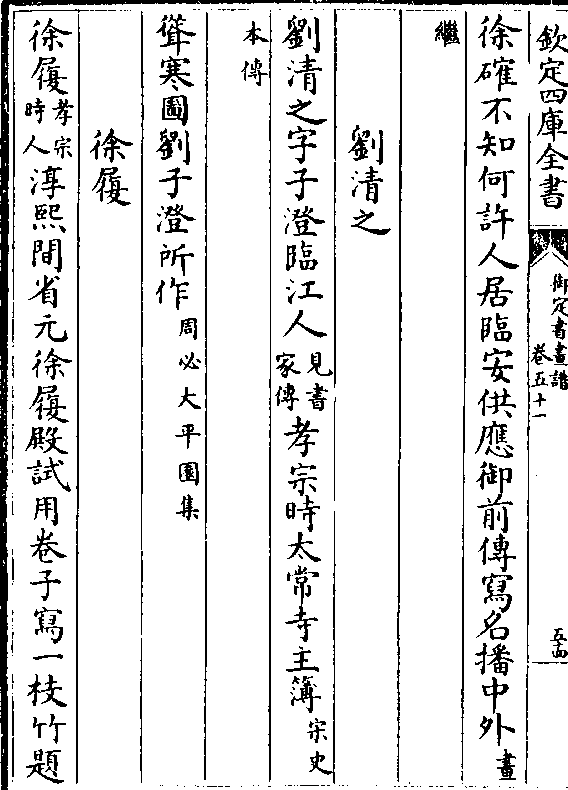 欽定四庫全書
御定書畫譜
卷五十一
徐確不知何許人居臨安供應御前傳寫名播中外畫
繼
劉清之
劉清之字子澄臨江人見書家傳孝宗時太常寺主簿宋史
本傳
聳寒圖劉子澄所作周必大平園集
徐履
徐履孝宗時人淳熙間省元徐履殿試用卷子寫一枝竹題